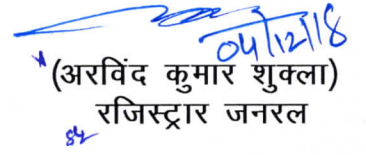 04/12/18
(अरविंद कुमार शुक्ला)
रजिस्ट्रार जनरल